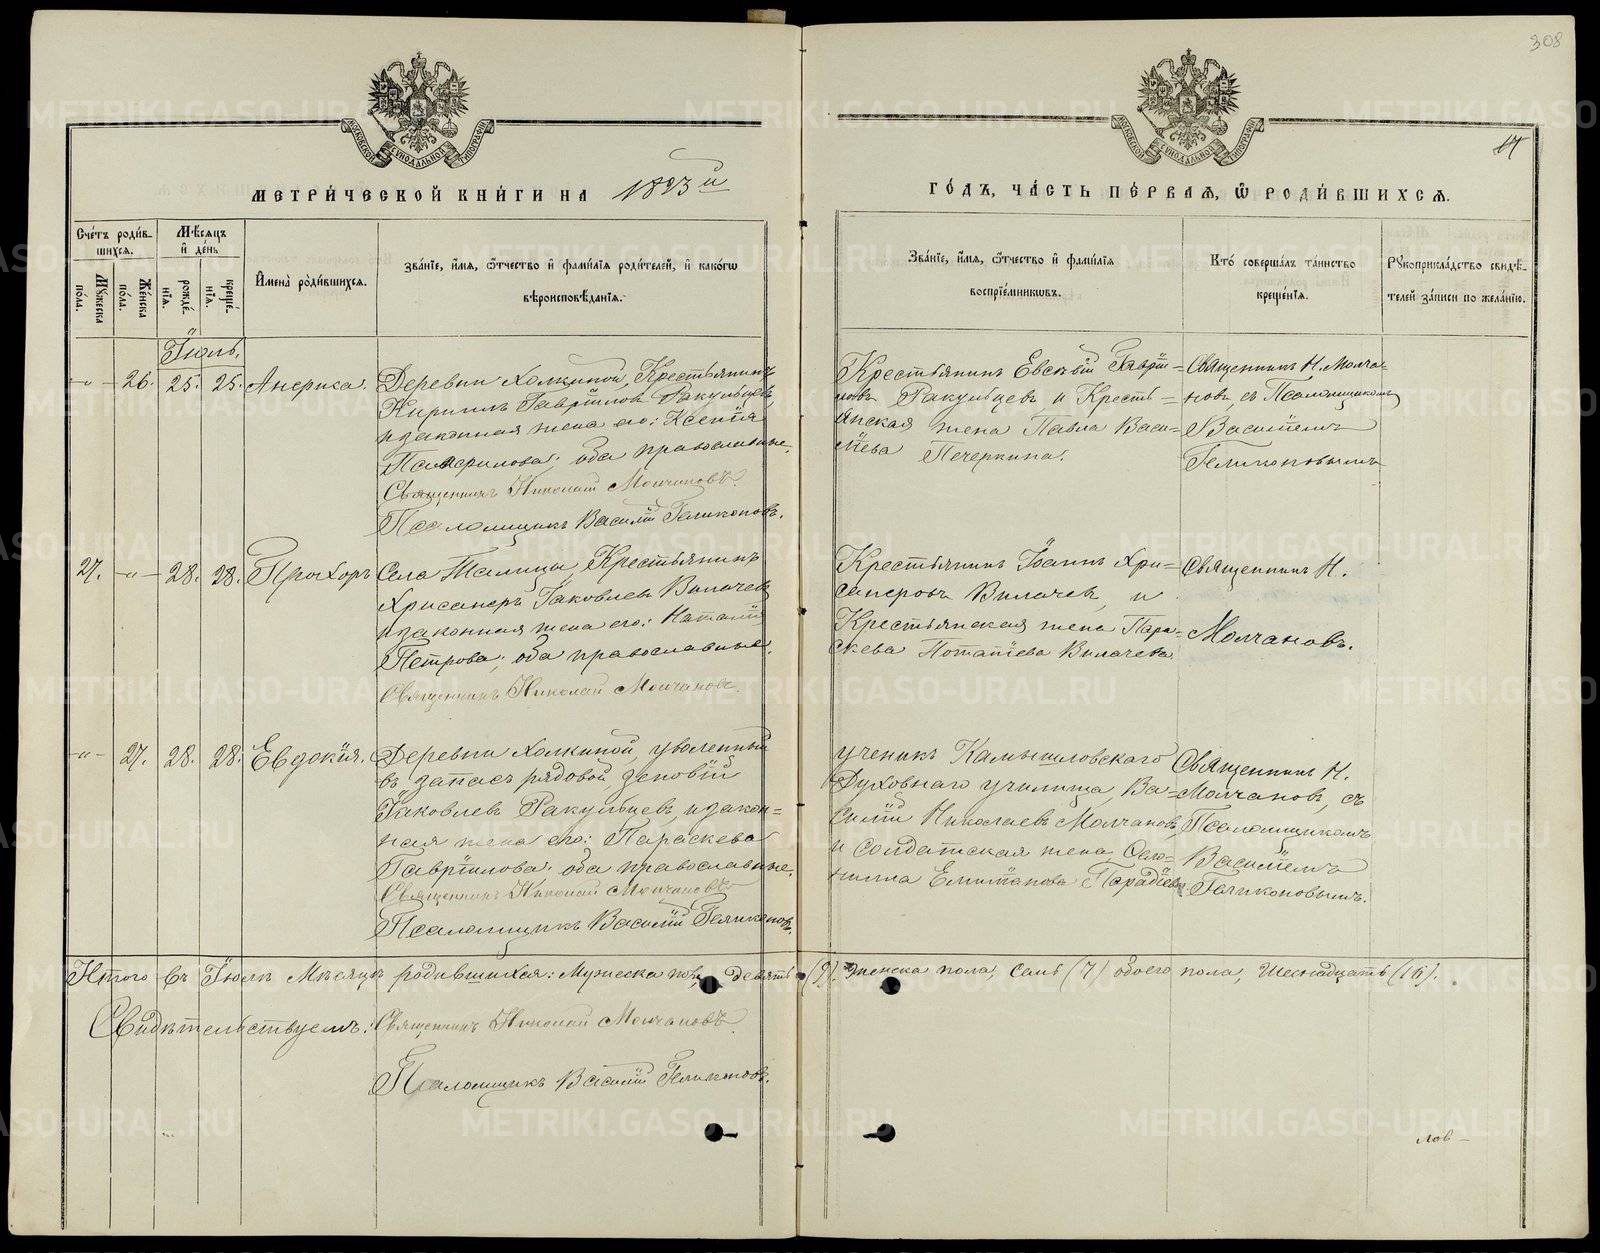 308
17
МЕТРИ́ЧЕСКОЙ КНИ́ГИ НА 1893й
ГО́ДЪ, ЧА́СТЬ ПЕ́РВАѦ, Ѿ РОДИ́ВШИХСѦ.
Сче́тъ роди́в-
шихсѧ.
Му́жеска по́ла.
Же́нска по́ла.
Мѣ́сѧцъ
и҆ де́нь
рожде́-
нїѧ.
креще́-
нїѧ.
И҆мена̀ роди́вшихсѧ.
Зва́нїе, и҆́мѧ, ѻ҆́тчество и҆ фами́лїѧ роди́телей, и҆ како́гѡ
вѣроисповѣ́данїѧ.
Зва́нїе, и҆́мѧ, ѻ҆́тчество и҆ фами́лїѧ
воспрїе́мникѡвъ.
Кто̀ соверша́лъ та́инство
креще́нїѧ.
Рꙋкоприкла́дство свидѣ́-
телей за́писи по жела́нїю.
Іюль.
-"- 26. 25. 25. Анфиса.
Деревни Холкиной, Крестьянинъ
Кириллъ Гавріиловъ Ракульцевъ
и законная жена его: Ксенія
Панфилова; оба православные.
Священникъ Николай Молчановъ.
Псаломщикъ Василій Геликоновъ.
Крестьянинъ Евсевій Гаврі-
ловъ Ракульцевъ и Кресть-
янская жена Павла Васи-
льева Печеркина.
Священникъ Н. Молча-
новъ, съ Псаломщикомъ
Василіемъ
Геликоновымъ
27. -"- 28. 28. Прохоръ
Села Талицы Крестьянинъ
Хрисанфъ Іаковлевъ Вилачевъ
и законная жена его: Наталія
Петрова; оба православные.
Священникъ Николай Молчановъ.
Крестьянинъ Іоаннъ Хри-
санфовъ Вилачевъ, и
Крестьянская жена Пара-
скева Потапіева Вилачева
Священникъ Н.
Молчановъ.
-"- 27. 28. 28. Евдокія.
Деревни Холкиной, уволенный
въ запасъ рядовой Зеновій
Іаковлевъ Ракульцевъ, и закон-
ная жена его: Параскева
Гавріилова; оба православные.
Священникъ Николай Молчановъ
Псаломщикъ Василій Геликоновъ.
ученикъ Камышловскаго
Духовнаго училища, Ва-
силій Николаевъ Молчановъ,
и солдатская жена
Священникъ Н.
Молчановъ, съ
Псаломщикомъ
Василіемъ
Геликоновымъ.
Итого въ Іюлѣ Мѣсяцѣ родившихся: Мужеска пола, девять (9), женска пола, семь (7) обоего пола, шестнадцать (16).
Свидѣтельствуемъ: Священникъ Николай Молчановъ.
Псаломщикъ Василій Геликоновъ.